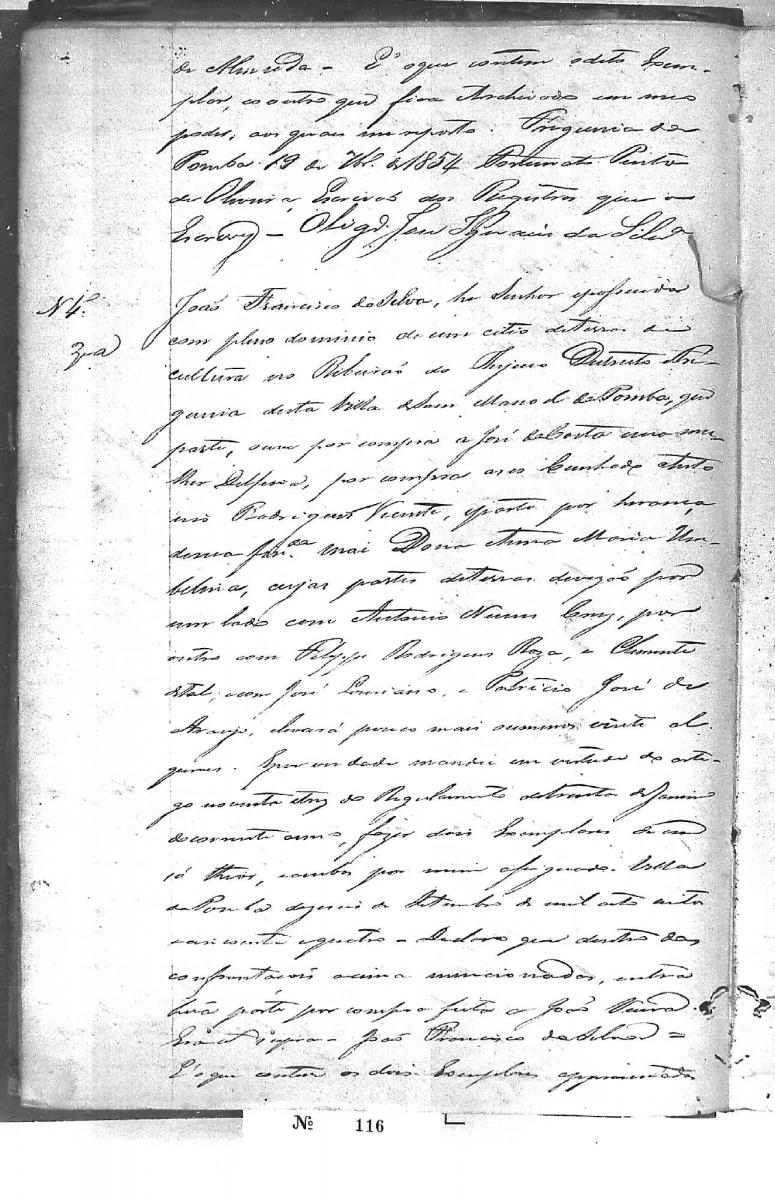 de Almeida - E' o que contem o dito Exem-
plar, e o outro que fica Archivado em meo
poder, aos quaes me reporto. Freguesia da
Pomba 19 de 7br.º de 1854 Fortunato Pinto
de Oliveira, Escrivaõ dos Registros que o
Escrevy - Obrigd. Jose Ignacio da Silva
Nº 4.
João Francisco da Silva, he Senhor e possuidor
com pleno dominio de um citio de terras de
cultura no Ribeiraõ do Destricto Fre-
guesia desta Villa de Sam Manoel da Pomba, que
parte, ouve por compra a José da Costa e sua mu-
lher Delfina, por compra a seo Cunhado Anto
nio Rodrigues Vicente, e parte por herança
de sua mai Dona Anna Maria Um-
belina, cujas partes de terras devizaõ por
um lado com Antonio Nunes, por
outro com Felippe Rodrigues Roza, e Clemente
de tal, e com José Louriano, e Patricio José de
Araujo, e levará pouco mais ou menos vinte al
queires. E por verdade mandei em virtude do arti-
go noventa e trez do Regulamento de trinta de Janeiro
do corrente anno, fazer dois Exemplares de um
só theor, e ambos por mim assignado. Villa
da Pomba dezeseis de Setembro de mil oito centos
e cincoenta e quatro - Declaro que dentro das
confrontacois acima mencionadas, entra
huã parte por compra feita a João Vieira.
Era et supra - João Francisco da Silva =
E' o que contem os dois Exemplares appresentados
Nº 116